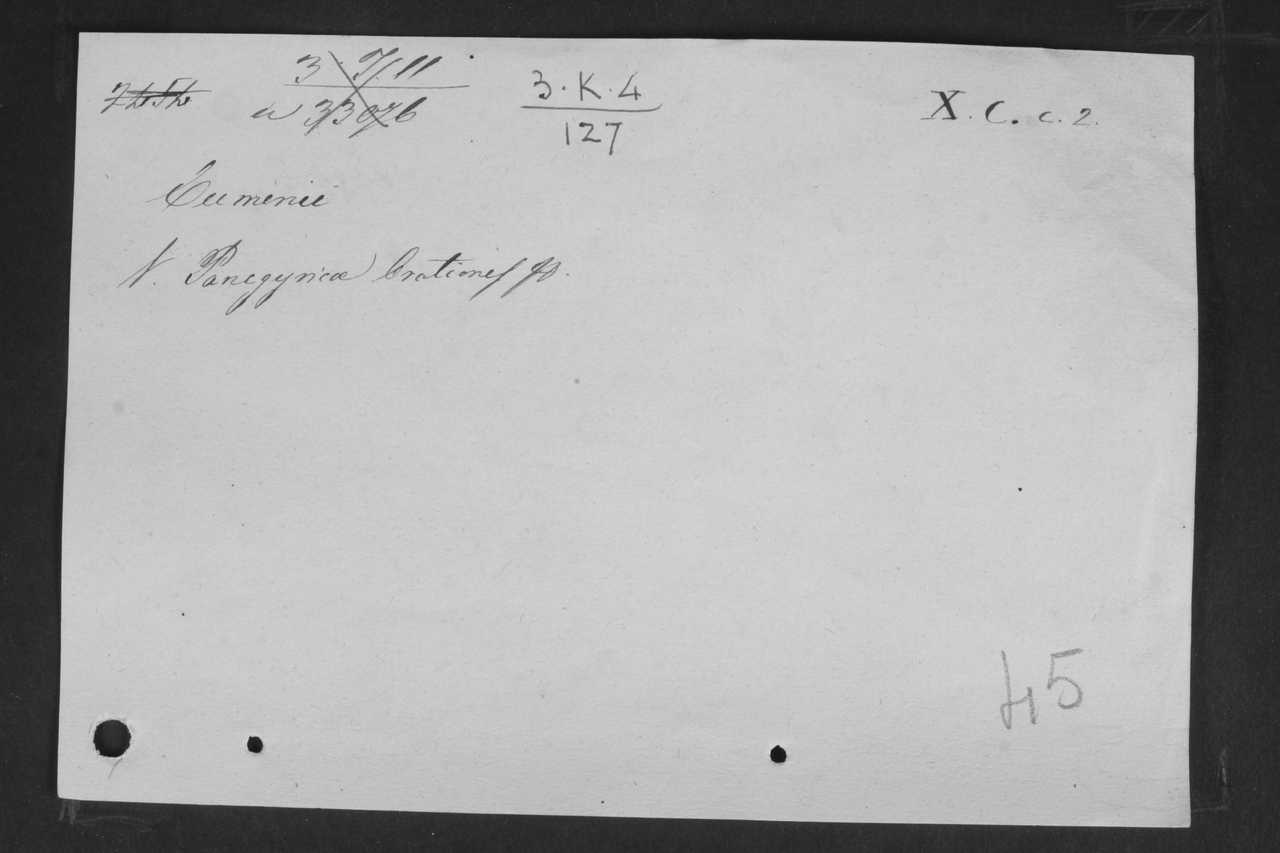 3. 7/11
3·K·4
127
X. C. c. 2.
Eumenii
V. Panegyricæ Orationes
45